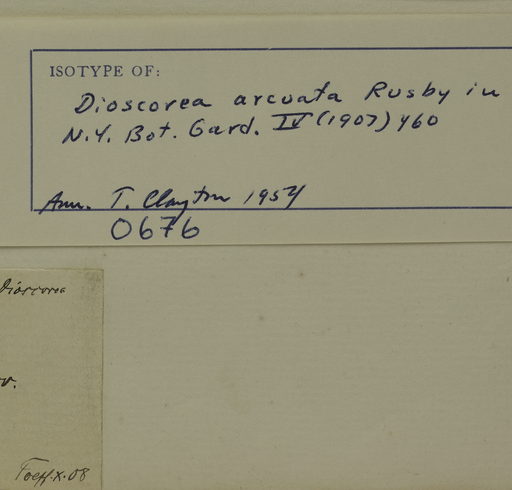 ISOTYPE OF:
Dioscorea arcuata Rusby in
N.Y. Bot. Gard. IV (1907) 460
Ann. T. Clayton 1954
0676
Dioscorea
x.08